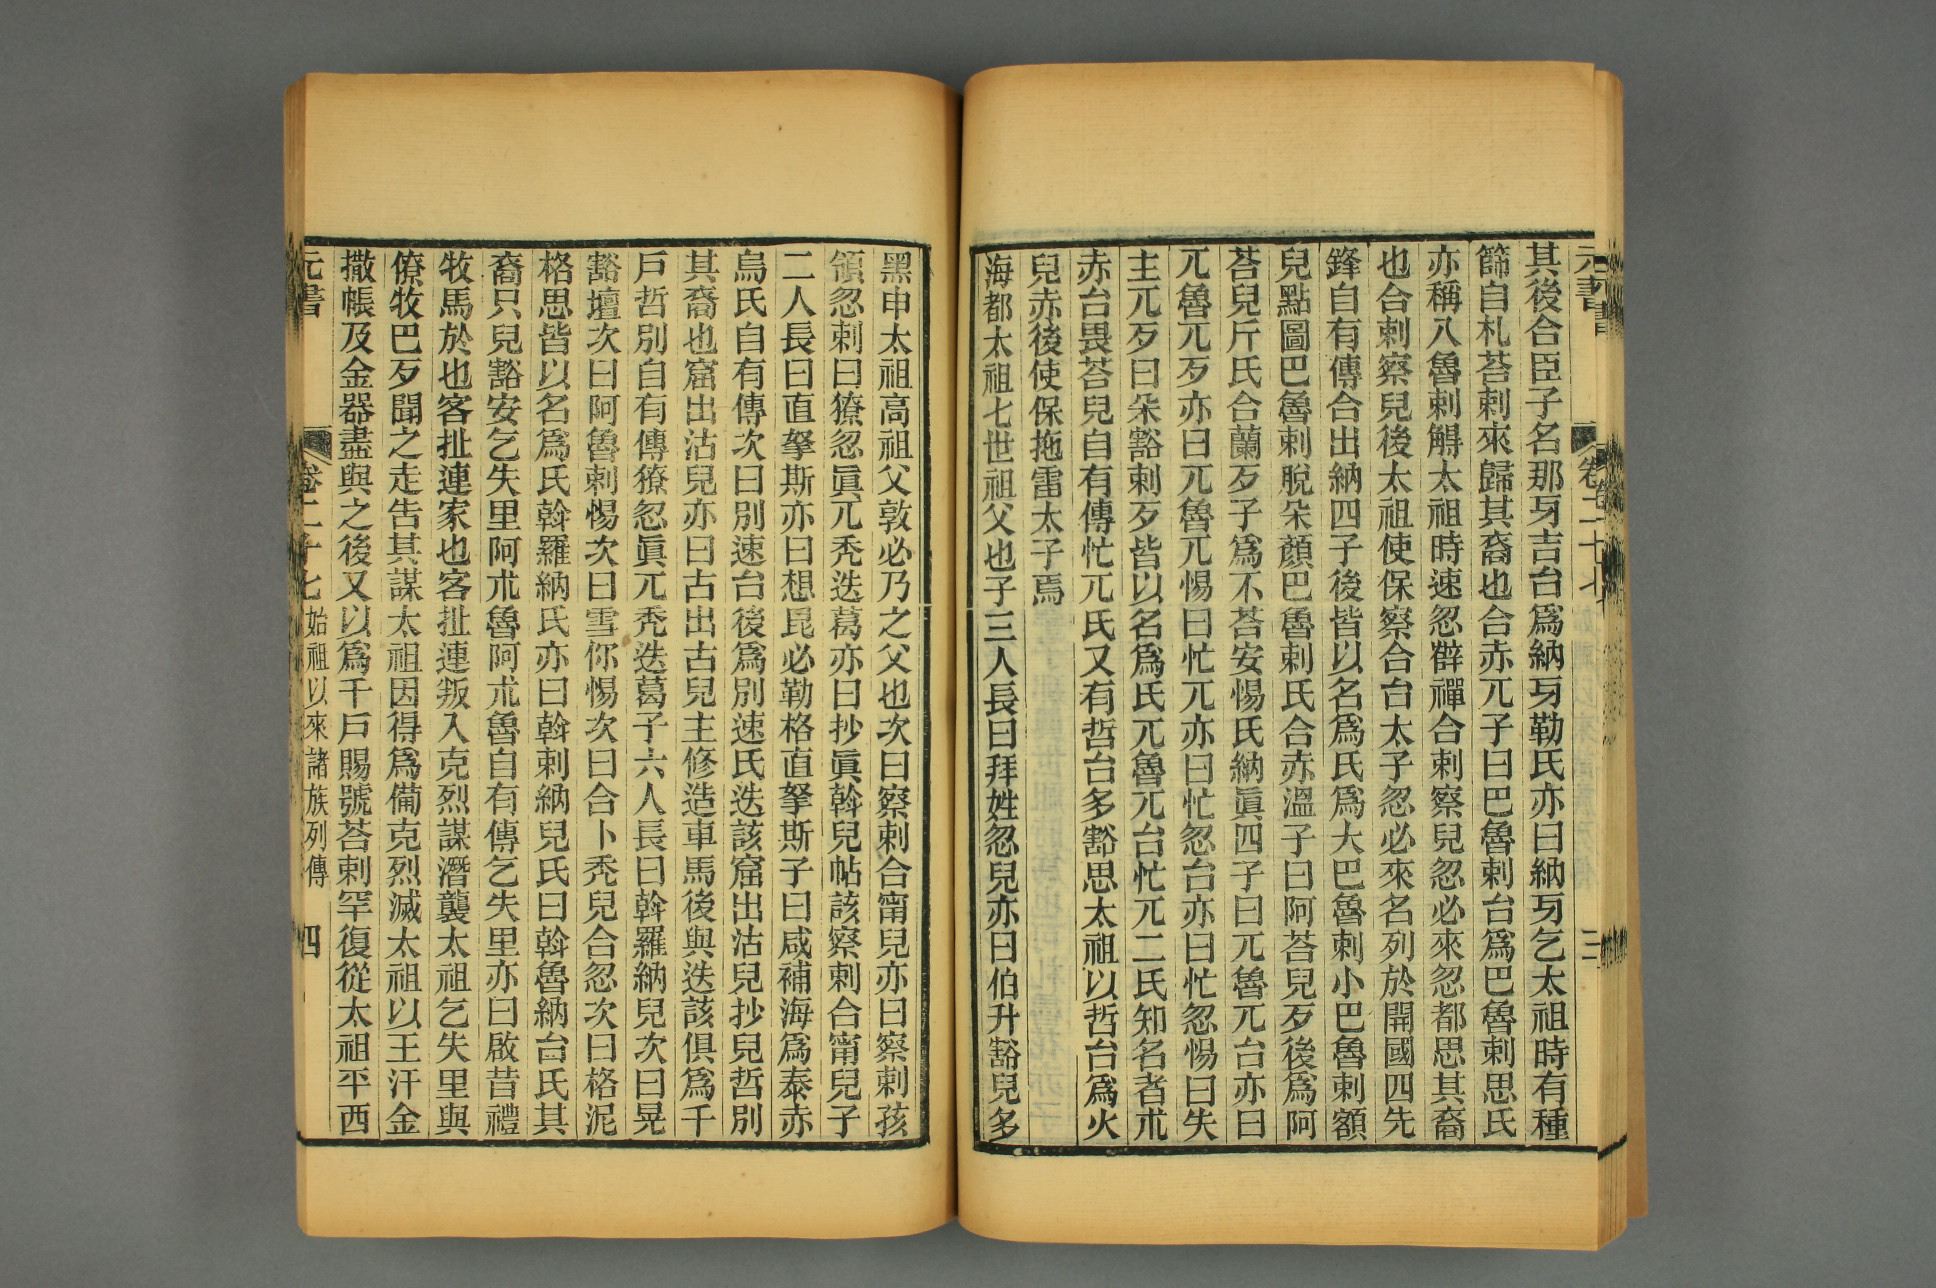 元書
卷二十七
三
其後合臣子名那牙吉台爲納牙勒氏亦曰納牙乞太祖時有種
篩自札荅剌來歸其裔也合赤兀子曰巴魯剌台爲巴魯剌思氏
亦稱八魯剌觶太祖時速忽辥禪合剌察兒忽必來忽都思其裔
也合剌察兒後太祖使保察合台太子忽必來名列於開國四先
鋒自有傳合出納四子後皆以名爲氏爲大巴魯剌小巴魯剌額
兒點圖巴魯剌脫朵顏巴魯剌氏合赤溫子曰阿荅兒歹後爲阿
荅兒斤氏合蘭歹子爲不荅安惕氏納眞四子曰兀魯兀台亦曰
兀魯兀歹亦曰兀魯兀惕曰忙兀亦曰忙忽台亦曰忙忽惕曰失
主兀歹曰朵豁剌歹皆以名爲氏兀魯兀台忙兀二氏知名者朮
赤台畏荅兒自有傳忙兀氏又有哲台多豁思太祖以哲台爲火
兒赤後使保拖雷太子焉
海都太祖七世祖父也子三人長曰拜姓忽兒亦曰伯升豁兒多
黑申太祖高祖父敦必乃之父也次曰察剌合甯兒亦曰察剌孩
領忽剌曰獠忽眞兀禿迭葛亦曰抄眞斡兒帖該察剌合甯兒子
二人長曰直拏斯亦曰想昆必勒格直拏斯子曰咸補海爲泰赤
烏氏自有傳次曰別速台後爲別速氏迭該窟出沽兒抄兒哲別
其裔也窟出沽兒亦曰古出古兒主修造車馬後與迭該俱爲千
戶哲別自有傳獠忽眞兀禿迭葛子六人長曰斡羅納兒次曰晃
豁壇次曰阿魯剌惕次曰雪你惕次曰合卜禿兒合忽次曰格泥
格思皆以名爲氏斡羅納氏亦曰斡剌納兒氏曰斡魯納台氏其
裔只兒豁安乞失里阿朮魯阿朮魯自有傳乞失里亦曰啟昔禮
牧馬於也客扯連家也客扯連叛入克烈謀潛襲太祖乞失里與
僚牧巴歹聞之走告其謀太祖因得爲備克烈滅太祖以王汗金
撒帳及金器盡與之後又以爲千戶賜號荅剌罕復從太祖平西
元書
卷二十七
始祖以來諸族列傳
四